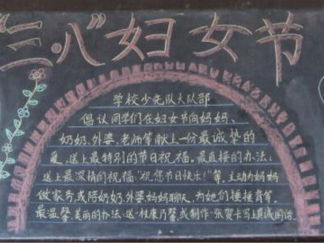 "三·八"妇女节
学校少先队大队部
倡议同学们在妇女节向妈妈、
奶奶、外婆、老师等献上一份最诚挚的
爱,送上最特别的节日祝福。最直接的办法:
送上最深情的祝福"祝您节日快乐!"等,主动为妈妈
做家务,或陪奶奶、外婆、妈妈聊天,为她们捶捶背等。
最温馨、美丽的办法:送一枝康乃馨或制作一张贺卡写上真诚